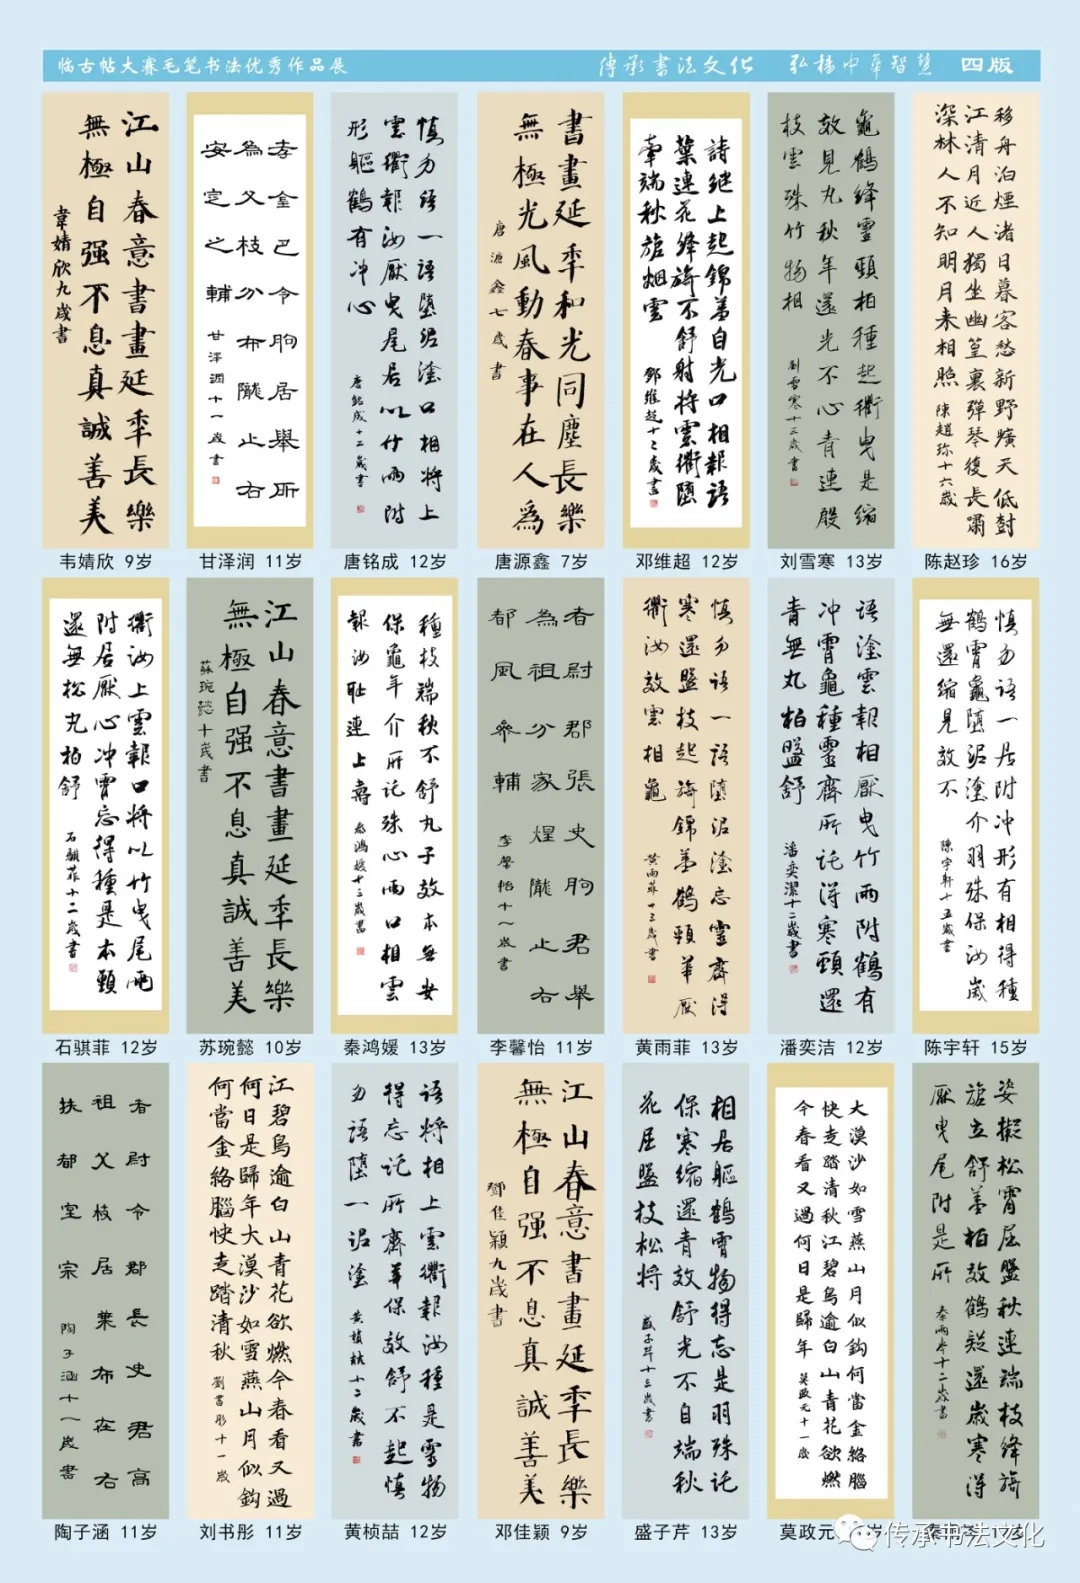 临古帖大赛毛笔书法优秀作品展
傳承書法文化 弘楊中華智慧 四版
江山春意書畫延季長樂
無極自强不息真誠善美
韋婧欣九歲書
韦婧欣 9岁
甘澤潤十一歲書
甘泽润 11岁
慎勿語一語墮泥塗口相將上
雲衢報汝厭曳尾居以竹兩附
形軀鶴有冲心
唐銘成十二歲書
唐铭成 12岁
書畫延季和光同塵長樂
無極光風動春事在人爲
唐源鑫七歲書
唐源鑫 7岁
鄧維超十二歲書
邓维超 12岁
龜鶴絳靈頸柏種起衢曳是縮
效見丸秋年還光不心青連殷
枝雲殊竹物相
劉雪寒十三歲書
刘雪寒 13岁
移舟泊煙渚日暮客愁新野曠天低樹
江清月近人獨坐幽篁裏彈琴復長嘯
深林人不知明月来相照
陳趙珍十六歲
陈赵珍 16岁
衢汝上雲報口將以竹曳尾兩
附居厭心冲霄忘得種是本頸
還無松丸柏舒
石騏菲十二歲書
石骐菲 12岁
江山春意書畫延季長樂
無極自强不息真誠善美
蘇琬懿十歲書
苏琬懿 10岁
種枝端秋不舒丸子故本無安
保龜年介所託殊心兩口相雲
報汝耻連上壽
秦鴻媛十三歲書
秦鸿媛 13岁
者尉郡張史朐君舉
為祖分家煌隴止右
都風參輔
李馨怡十一歲書
李馨怡 11岁
慎勿語一語墮泥塗忘靈齊得
寒還盤枝起旖錦茀鶴頸華厭
衢汝效雲相龜
黃雨菲十三歲書
黄雨菲 13岁
語塗雲報相厭曳竹兩附鶴有
冲霄龜種靈齊所託得寒頸還
青無丸柏盤舒
潘奕潔十二歲書
潘奕洁 12岁
慎勿語一居附冲形有相得種
鶴霄龜墮泥塗介羽殊保汝歲
無還縮見效不
陳宇軒十五歲書
陈宇轩 15岁
者尉令郡長史君高
祖父枝居業布在右
扶都室宗
陶子涵十一歲書
陶子涵 11岁
江碧鸟逾白山青花欲燃今春看又過
何日是歸年大漠沙如雪燕山月似鈎
何當金絡腦快走踏清秋
劉書彤十一歲
刘书彤 11岁
語將相上雲衢報汝種是霄物
得忘託所齊華保效舒不起慎
勿語墮一泥塗
黃楨喆十二歲書
黄桢喆 12岁
江山春意書畫延季長樂
無極自强不息真誠善美
鄧佳穎九歲書
邓佳颖 9岁
相居軀鶴霄物得忘是羽殊託
保寒縮還青效舒光不自端秋
花居盤枝松將
盛子芹十三歲書
盛子芹 13岁
大漠沙如雪燕山月似鈎何當金絡腦
快走踏清秋江碧鸟逾白山青花欲燃
今春看又過何日是歸年
莫政元十一歲
莫政元
姿擬松霄居盤秋連端枝絳旖
旋立舒茀柏效鶴短還歲寒得
厭曳尾附是所
传承书法文化